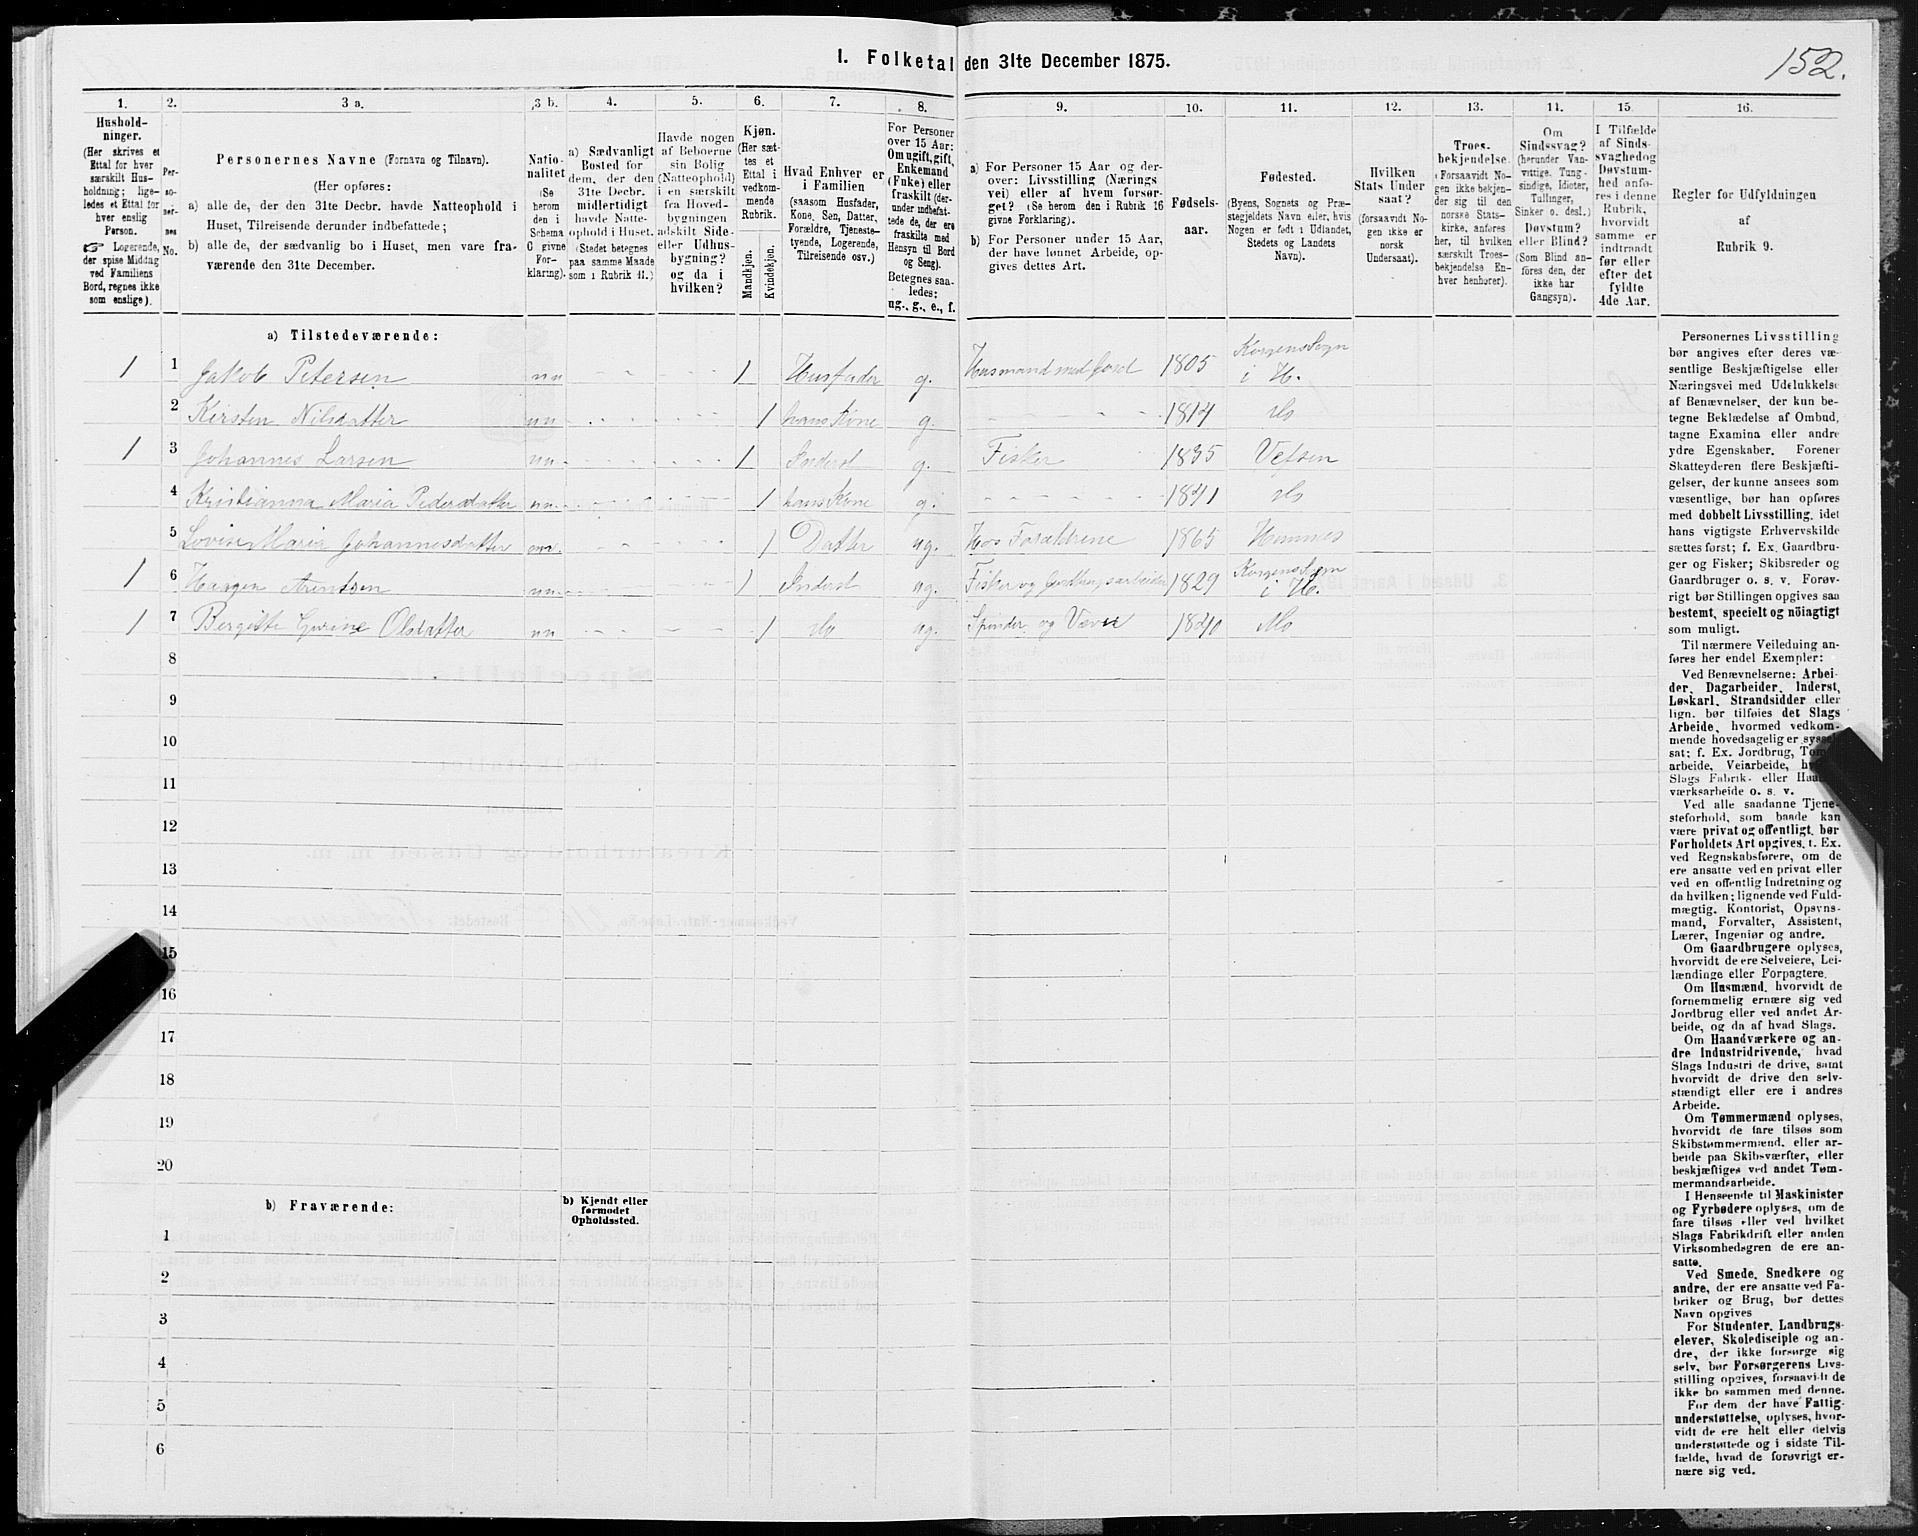 I. Folketal den 31te December 1875.
152.
1. 2. 3 a. 3 b. 4. 5. 6. 7. 8. 9. 10. 11. 12. 13. 14. 15. 16.
Hushold-
ninger.
(Her skrives et
Ettal for hver
særskilt Hus-
holdning; lige-
ledes et Ettal for
hver enslig
Person.
☞ Logerende,
der spise Middag
ved Familiens
Bord, regnes ikke
som enslige).
Per-
so-
ner-
nes
No.
Personernes Navne (Fornavn og Tilnavn).
(Her opføres:
a) alle de, der den 31te Decbr. havde Natteophold i
Huset, Tilreisende derunder indbefattede;
b) alle de, der sædvanlig bo i Huset, men vare fra-
værende den 31te December.
Natio-
nalitet
(Se
herom
den i
Schema
C givne
For-
klaring).
a) Sædvanligt
Bosted for
dem, der den
31te Decbr.
midlertidigt
havde Natte-
ophold i Huset.
(Stedet betegnes
paa samme Maade
som i Rubrik 11.)
Havde nogen
af Beboerne
sin Bolig
(Natteophold)
i en særskilt
fra Hoved-
bygningen
adskilt Side-
eller Udhus-
bygning?
og da i
hvilken?
Kjøn.
(Her sæt-
tes et
Ettal i
vedkom-
mende
Rubrik.
Mandkjøn.
Kvindekjøn.
Hvad Enhver er
i Familien
(saasom Husfader,
Kone, Søn, Datter,
Forældre, Tjeneste-
tyende, Logerende,
Tilreisende osv.)
For Personer
over 15 Aar:
Om ugift, gift,
Enkemand
(Enke) eller
fraskilt (der-
under indbefat-
tede de, der ere
fraskilte med
Hensyn til Bord
og Seng).
Betegnes saa-
ledes:
ug., g., e., f.
a) For Personer 15 Aar og der-
over: Livsstilling (Nærings
vei) eller af hvem forsør-
get? (Se herom den i Rubrik 16
givne Forklaring).
b) For Personer under 15 Aar,
der have lønnet Arbeide, op-
gives dettes Art.
Fødsels-
aar.
Fødested.
(Byens, Sognets og Præ-
stegjeldets Navn eller, hvis
Nogen er født i Udlandet,
Stedets og Landets
Navn).
Hvilken
Stats Under
saat?
(forsaavidt No-
gen ikke er
norsk
Undersaat).
Troes-
bekjendelse.
(Forsaavidt No-
gen ikke bekjen-
der sig til den
norske Stats-
kirke, anføres
her, til hvilken
særskilt Troes-
bekjendelse En-
hver henhører).
Om
Sindssvag?
(herunder Van-
vittige, Tung-
sindige, Idioter,
Tullinger,
Sinker o. desl.)
Døvstum?
eller Blind?
(Som Blind an-
føres den, der
ikke har
Gangsyn).
I Tilfælde
af Sinds-
svaghed og
Døvstum-
hed anfø-
res i denne
Rubrik,
hvorvidt
samme er
indtraadt
før eller
efter det
fyldte
4de Aar.
Regler for Udfyldningen
af
Rubrik 9.
a) Tilstedeværende:
1 1 Jakob Petersen nn 1 Husfader g. Husmand med Jord 1805 Korgens Sogn i H.
2 Kirsten Nilsdatter nn 1 hans Kone g. 1814 do
1 3 Johannes Larsen nn 1 Inderst g. Fisker 1835 Vefsen
4 Kristianna Maria Pedersdatter nn 1 hans Kone g. 1841 do
5 Lovise Maria Johannesdatter nn. 1 Datter ug. Hos Forældrene 1865 Hemnes
1 6 Arentsen nn 1 Inderst ug. Fisker og Jordbrugsarbeider 1829 Korgens Sogn i H.
1 7 Bergitte Olsdatter nn 1 do ug. Spinder og Væver 1840 Mo
8
9
10
11
12
13
14
15
16
17
18
19
20
b) Fraværende:
b) Kjendt eller
formodet
Opholdssted.
1
2
3
4
5
6
Personernes Livsstilling
bør angives efter deres væ-
sentlige Beskjæftigelse eller
Næringsvei med Udelukkelse
af Benævnelser, der kun be-
tegne Beklædelse af Ombud,
tagne Examina eller andre
ydre Egenskaber. Forener
Skatteyderen flere Beskjæfti-
gelser, der kunne ansees som
væsentlige, bør han opføres
med dobbelt Livsstilling, idet
hans vigtigste Erhvervskilde
sættes først; f. Ex. Gaardbru-
ger og Fisker; Skibsreder og
Gaardbruger o. s. v. Forøv-
rigt bør Stillingen opgives saa
bestemt, specielt og nöiagtigt
som muligt.
Til nærmere Veiledning an-
føres her endel Exempler:
Ved Benævnelserne: Arbei-
der, Dagarbeider, Inderst,
Løskarl, Strandsidder eller
lign. bør tilføies det Slags
Arbeide, hvormed vedkom-
mende hovedsagelig er syssel-
sat; f. Ex. Jordbrug,
arbeide, Veiarbeide,
Slags Fabrik- eller
værksarbeide o. s. v.
Ved alle saadanne Tjene-
steforhold, som baade kan
være privat og offentligt, bør
Forholdets Art opgives, t. Ex.
ved Regnskabsførere, om de
ere ansatte ved en privat eller
ved en offentlig Indretning og
da hvilken; lignende ved Fuld-
mægtig, Kontorist, Opsyns-
mand, Forvalter, Assistent,
Lærer, Ingeniør og andre.
Om Gaardbrugere oplyses,
hvorvidt de ere Selveiere, Lei-
lændinge eller Forpagtere.
Om Husmænd, hvorvidt de
fornemmelig ernære sig ved
Jordbrug eller ved andet Ar-
beide, og da af hvad Slags.
Om Haandværkere og an-
dre Industridrivende, hvad
Slags Industri de drive, samt
hvorvidt de drive den selv-
stændigt eller ere i andres
Arbeide.
Om Tømmermænd oplyses,
hvorvidt de fare tilsøs som
Skibstømmermænd, eller ar-
beide paa Skibsværfter, eller
beskjæftiges ved andet Tøm-
mermandsarbeide.
I Henseende til Maskinister
og Fyrbødere oplyses, om de
fare tilsøs eller ved hvilket
Slags Fabrikdrift eller anden
Virksomhedsgren de ere an-
satte.
Ved Smede, Snedkere og
andre, der ere ansatte ved Fa-
briker og Brug, bør dettes
Navn opgives
For Studenter, Landbrugs-
elever, Skoledisciple og an-
dre, der ikke forsørge sig
selv, bør Forsørgerens Livs-
stilling opgives, forsaavidt de
ikke bo sammen med denne.
For dem, der have Fattig-
understøttelse, oplyses, hvor-
vidt de ere helt eller delvis
understøttede og i sidste Til-
fælde, hvad de forøvrigt er-
nære sig ved.